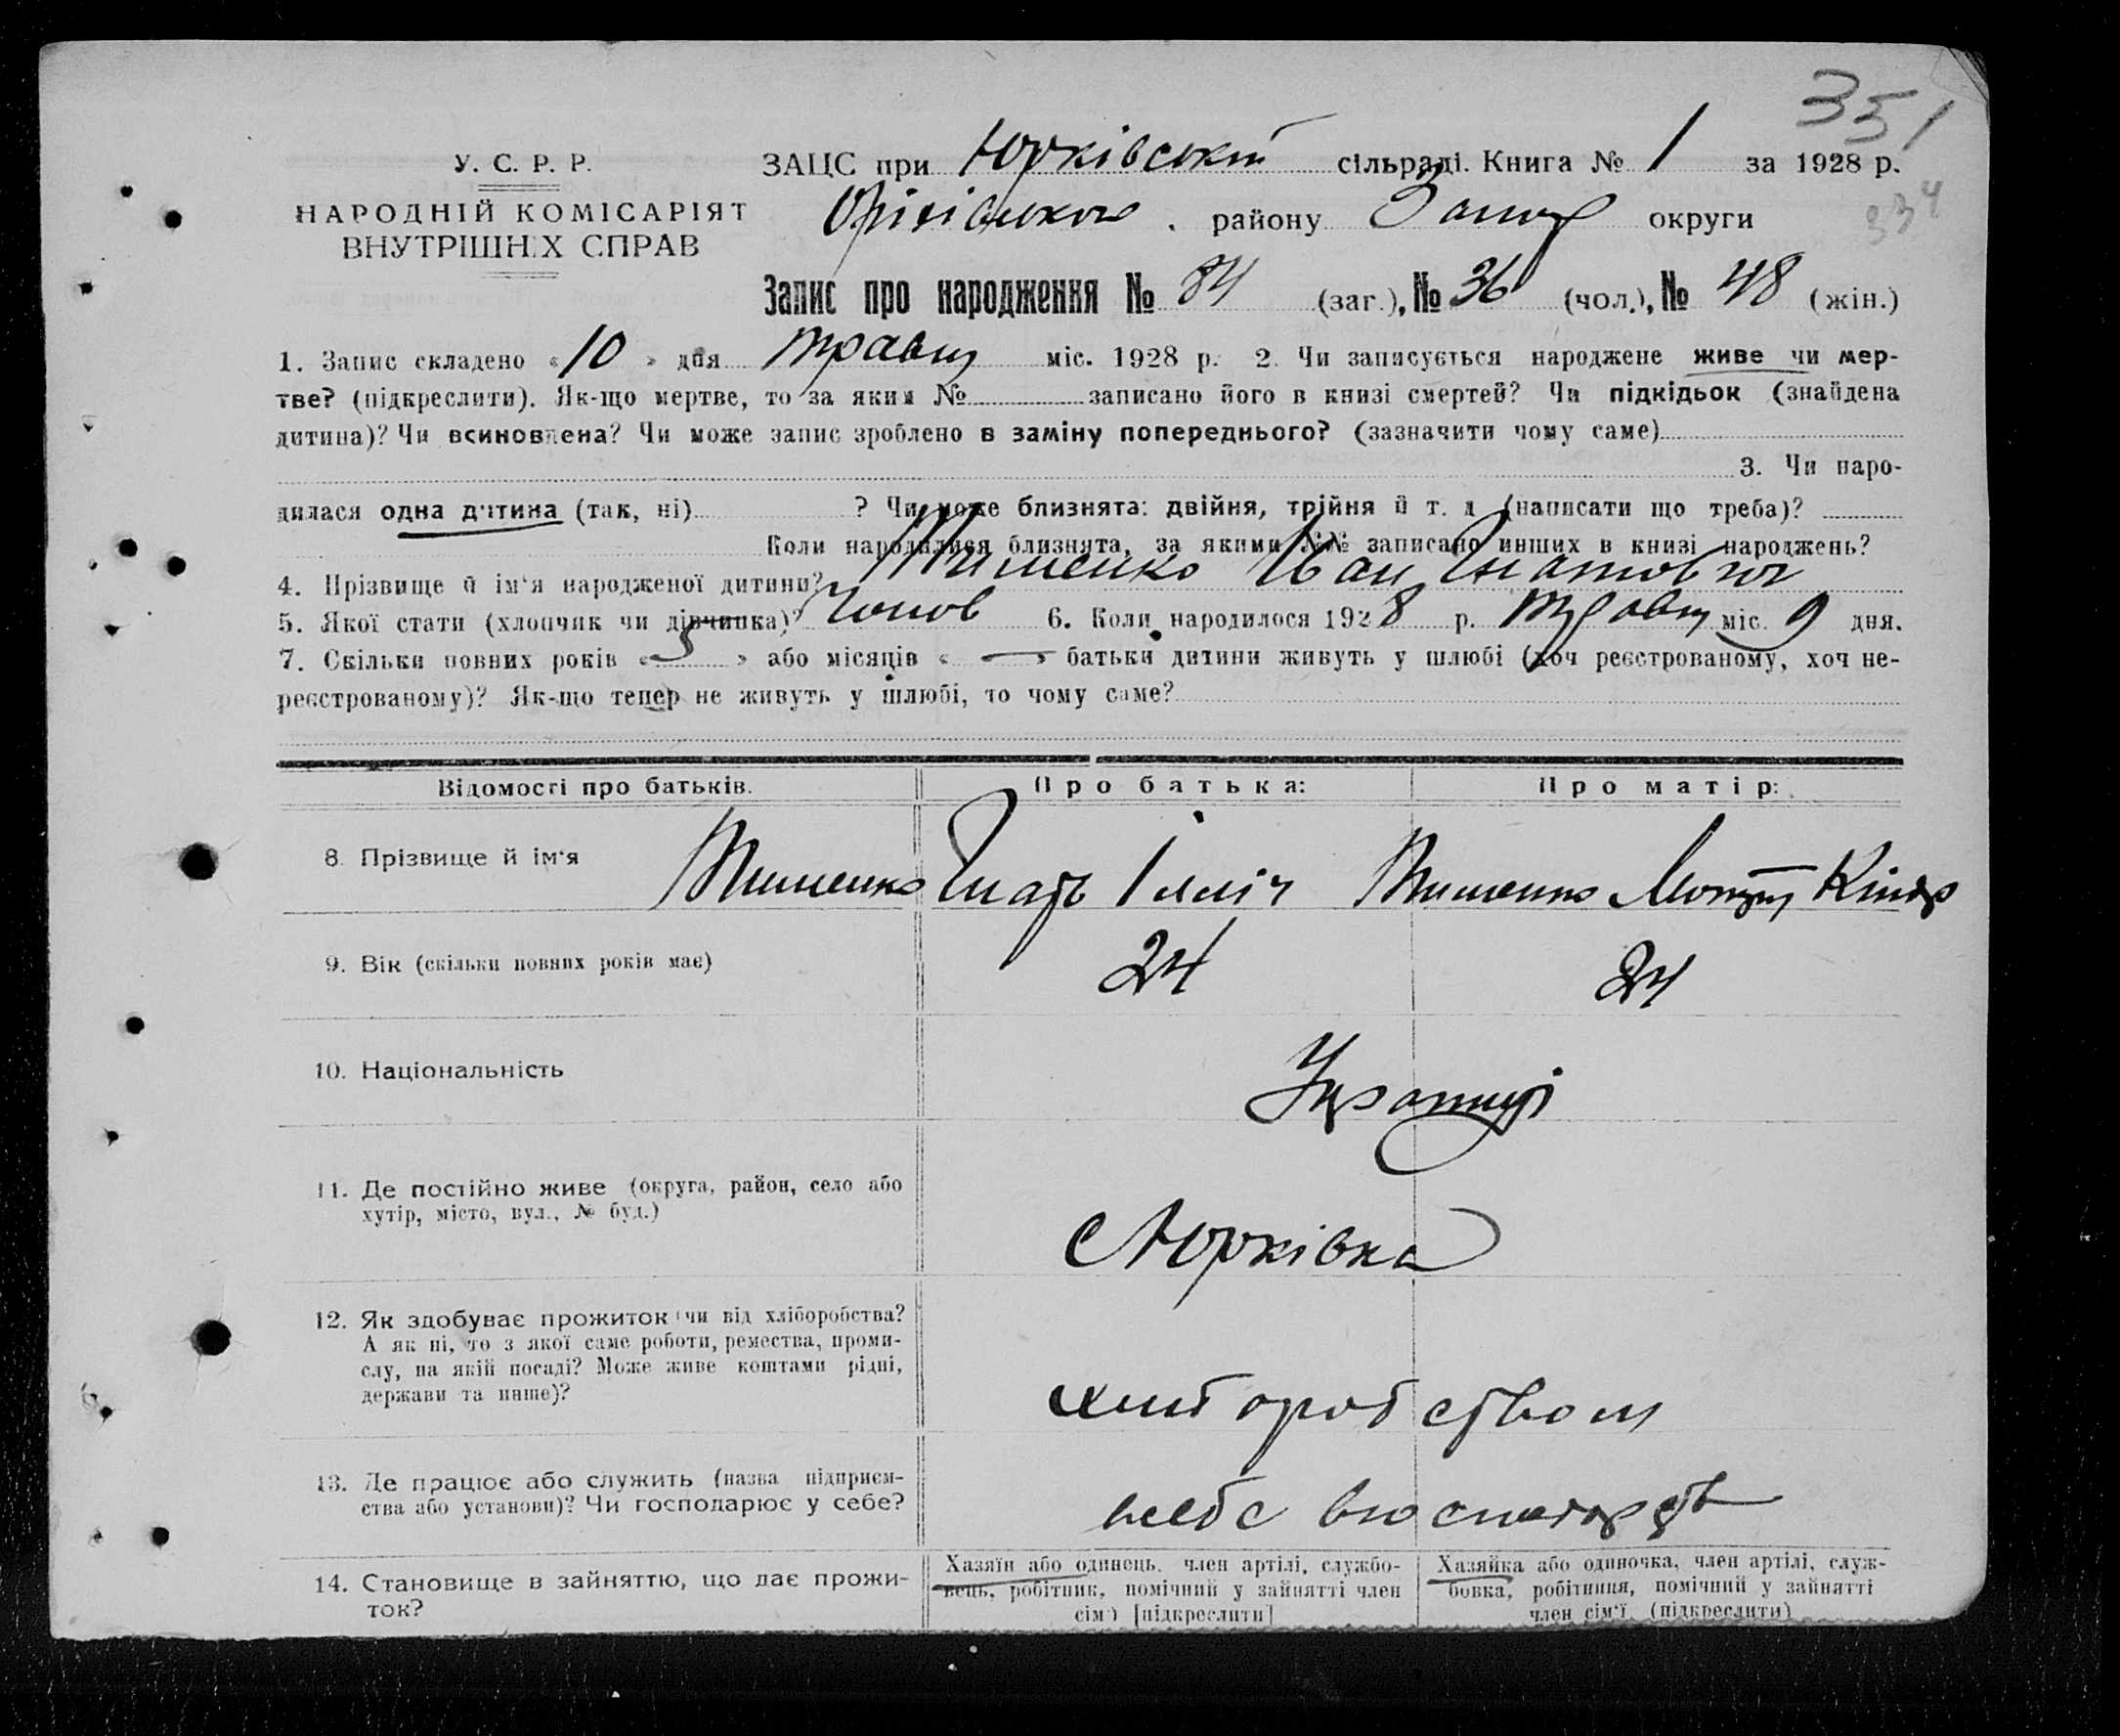 351
У. С. Р. Р.
НАРОДНІЙ КОМІСАРІЯТ
ВНУТРІШНІХ СПРАВ
ЗАЦС при Юрківській сільраді. Книга № 1 за 1928 р.
Оріхівського району Запор округи
334
Запис про народження № 84 (заг.), № 36 (чол.), № 48 (жін.)
1. Запис складено « 10 » дня травня міс. 1928 р. 2. Чи записується народжене живе чи мер-
тве? (підкреслити). Як-що мертве, то за яким № записано його в книзі смертей? Чи підкідьок (знайдена
дитина)? Чи всиновлена? Чи може запис зроблено в заміну попереднього? (зазначити чому саме)
3. Чи наро-
дилася одна дитина (так, ні) ? Чи може близнята: двійня, трійня й т. д (написати що треба)?
Коли народилися близнята, за якими №№ записано инших в книзі народжень?
4. Прізвище й ім'я народженої дитини? Тищенко Іван Гнатович
5. Якої стати (хлопчик чи дівчинка)? чолов 6. Коли народилося 1928 р. травня міс. 9 дня.
7. Скільки повних років « 5 » або місяців « — » батьки дитини живуть у шлюбі (хоч реєстрованому, хоч не-
реєстрованому)? Як-що тепер не живуть у шлюбі, то чому саме?
Відомості про батьків. Про батька: Про матір:
8. Прізвище й ім'я Тищенко Гнать Ілліч Тищенко Мотря Кіндр
9. Вік (скільки повних років має) 24 24
10. Національність Українці
11. Де постійно живе (округа, район, село або
хутір, місто, вул., № буд.)
с Юрківка
12. Як здобуває прожиток (чи від хліборобства?
А як ні, то з якої саме роботи, ремества, проми-
слу, на якій посаді? Може живе коштами рідні,
держави та инше)?
хліборобством
13. Де працює або служить (назва підприєм-
ства або установи)? Чи господарює у себе?
14. Становище в зайняттю, що дає прожи-
ток?
Хазяїн або одинець, член артілі, службо-
вець, робітник, помічний у зайнятті член
сім'ї [підкреслити]
Хазяйка або одиночка, член артілі, служ-
бовка, робітниця, помічний у зайнятті
член сім'ї. (підкреслити)